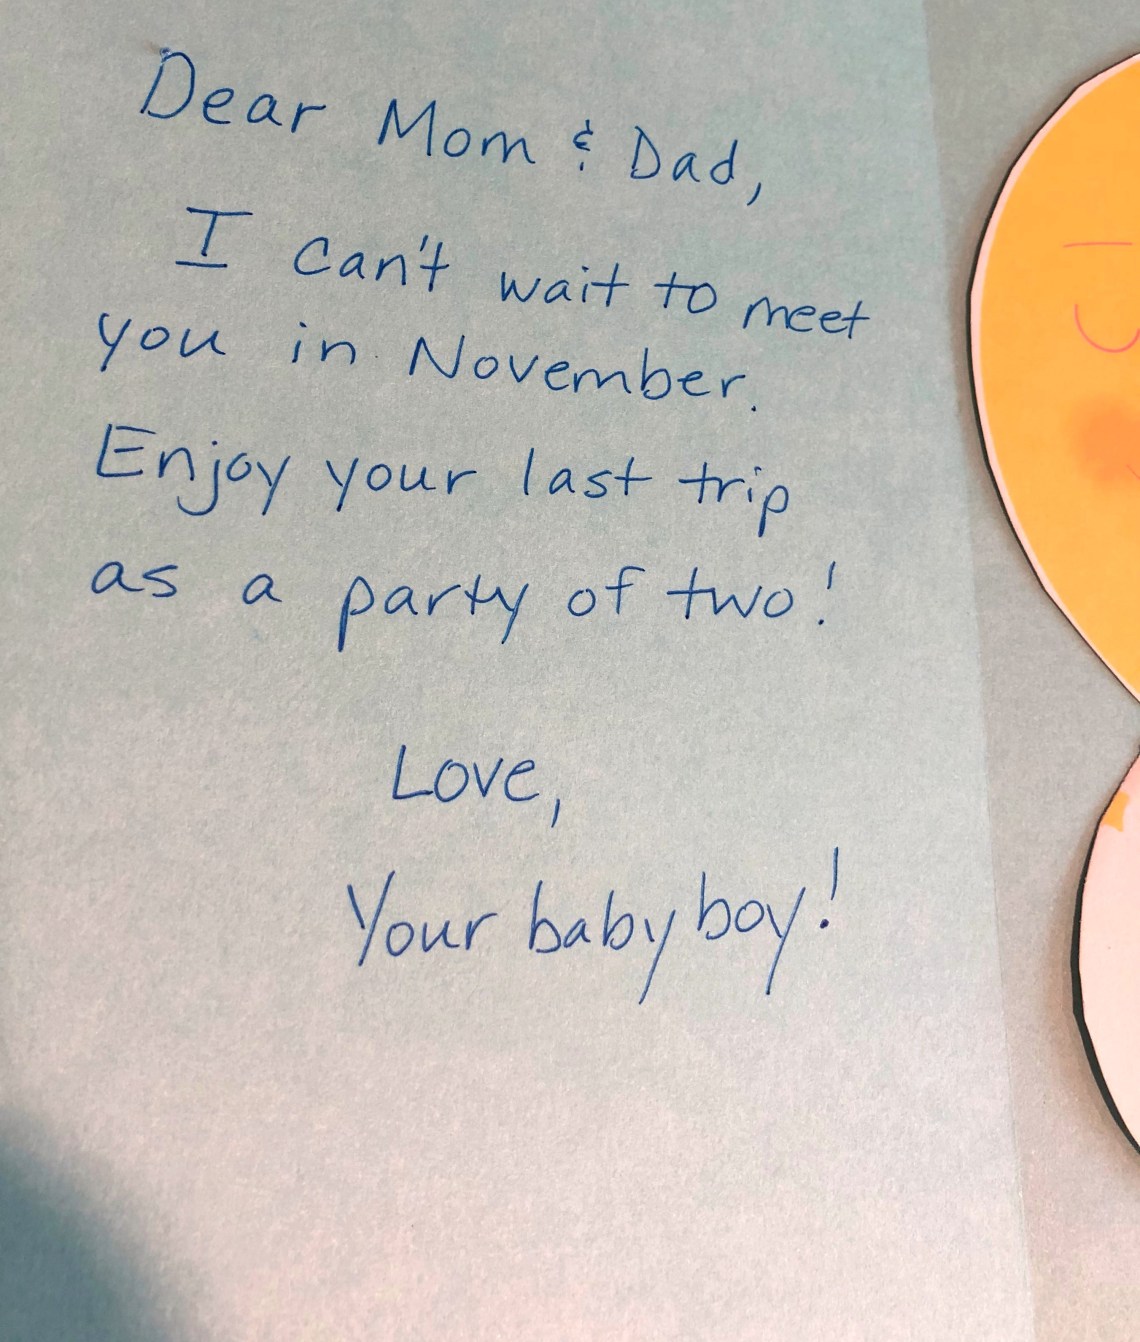 Dear Mom & Dad,
I can't wait to meet
you in November.
Enjoy your last trip
as a party of two!
Love,
Your baby boy!